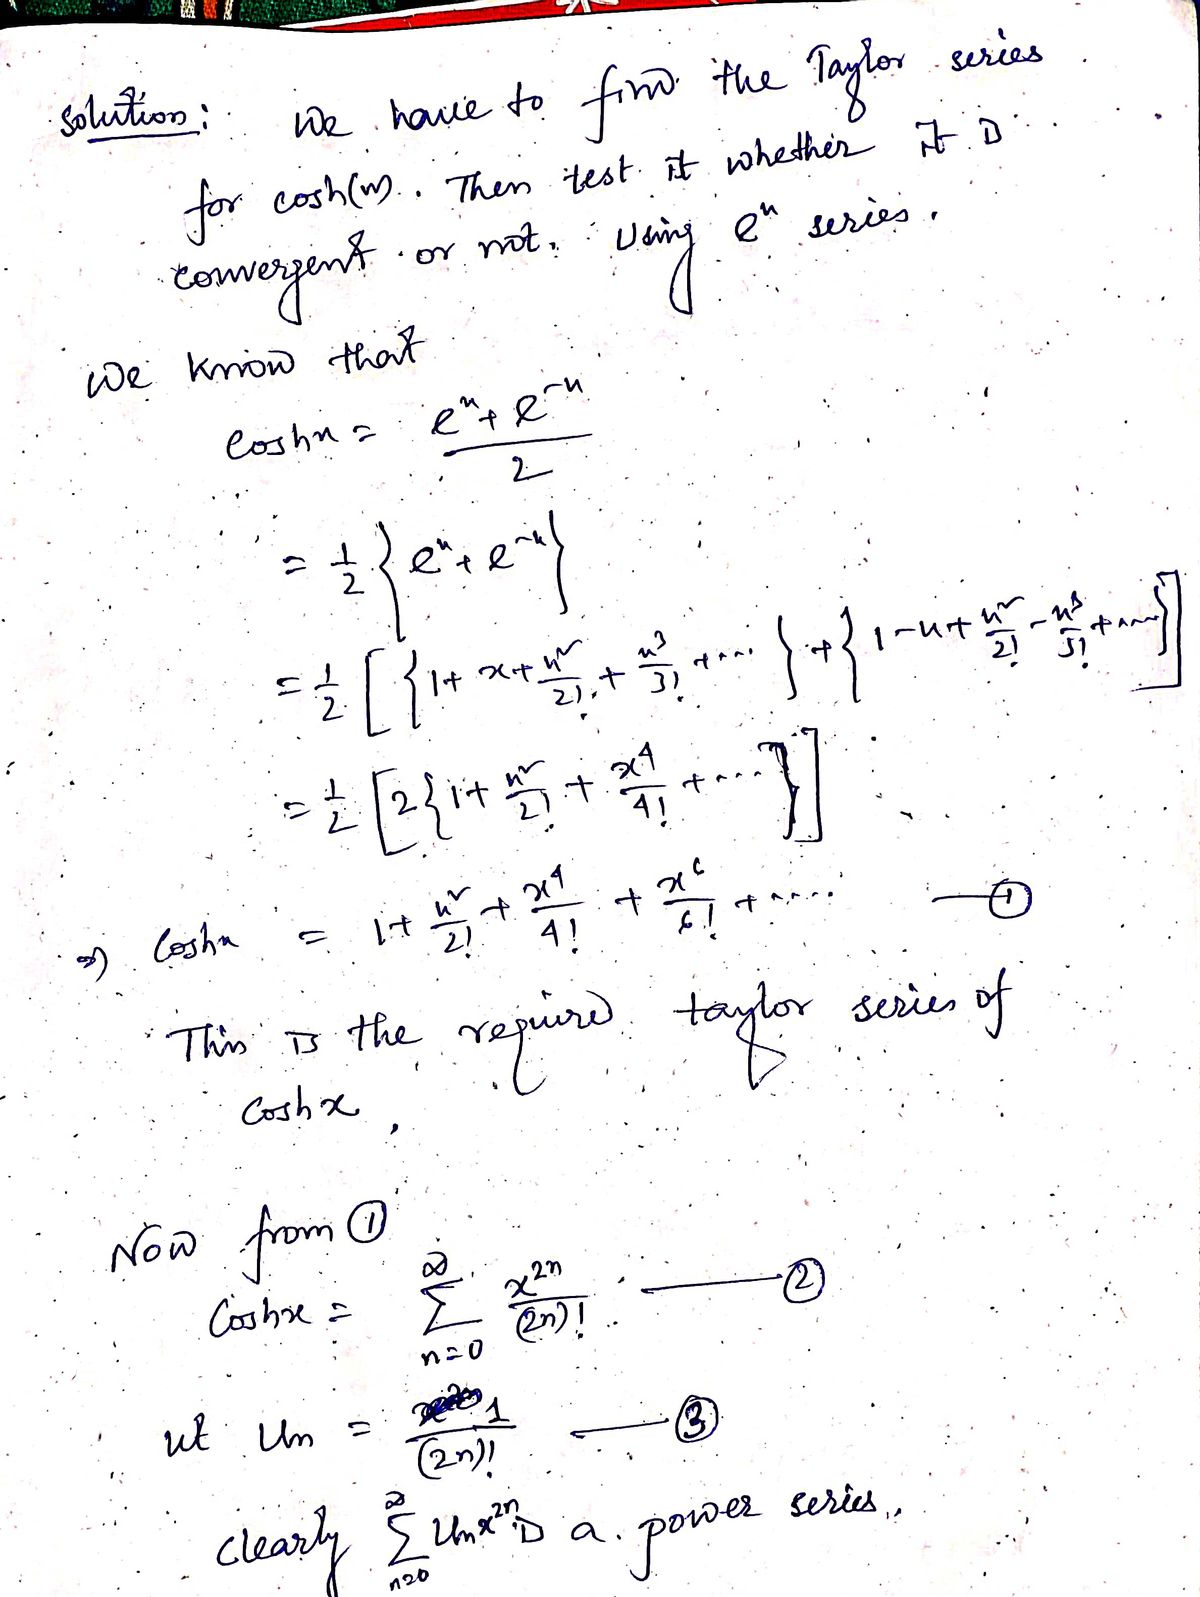 Solution: We have to find the Taylor series
for cosh(x). Then test it whether it is
convergent or not. Using e^x series.
We know that
Coshx = (e^x + e^-x)/2
= 1/2 {e^x + e^-x}
= 1/2 [{1 + x + x²/2! + x³/3! + ....} + {1 - x + x²/2! - x³/3! + ....}]
= 1/2 [2{1 + x²/2! + x⁴/4! + ....}]
⇒ Coshx = 1 + x²/2! + x⁴/4! + x⁶/6! + ..... —①
This is the required taylor series of
Coshx.
Now from ①
Coshx = ∑_{n=0}^{∞} x^{2n}/(2n)! —②
let Un = 1/(2n)! —③
clearly ∑_{n=0}^{∞} Un x^{2n} is a power series.